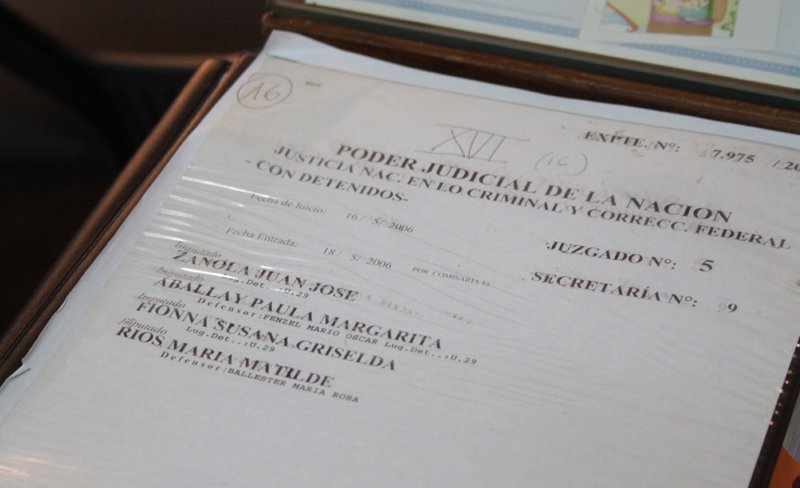 16
XVI
(16)
EXPTE. Nº: 7.975 /20
PODER JUDICIAL DE LA NACION
JUSTICIA NAC. EN LO CRIMINAL Y CORRECC. FEDERAL
- CON DETENIDOS-
Fecha de Inicio: 16 / 5 / 2006
JUZGADO Nº: 5
Fecha Entrada: 18 / 5 / 2006 POR COMISARIA
SECRETARÍA Nº: 9
Imputado
ZANOLA JUAN JOSE
Lug.Det..:U.29
Imputado
ABALLAY PAULA MARGARITA
Defensor:FENZEL MARIO OSCAR Lug.Det..:U.29
Imputado
FIONNA SUSANA GRISELDA
Lug.Det..:U.29
Imputado
RIOS MARIA MATILDE
Defensor:BALLESTER MARIA ROSA